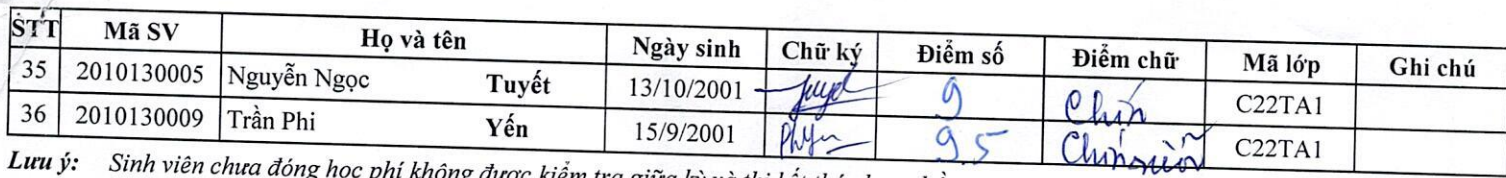 STT Mã SV Họ và tên Ngày sinh Chữ ký Điểm số Điểm chữ Mã lớp Ghi chú
35 2010130005 Nguyễn Ngọc Tuyết 13/10/2001 9 Chín C22TA1
36 2010130009 Trần Phi Yến 15/9/2001 9 5 C22TA1
Lưu ý: Sinh viên chưa đóng học phí không được kiểm tra giữa kỳ và thi kết thúc